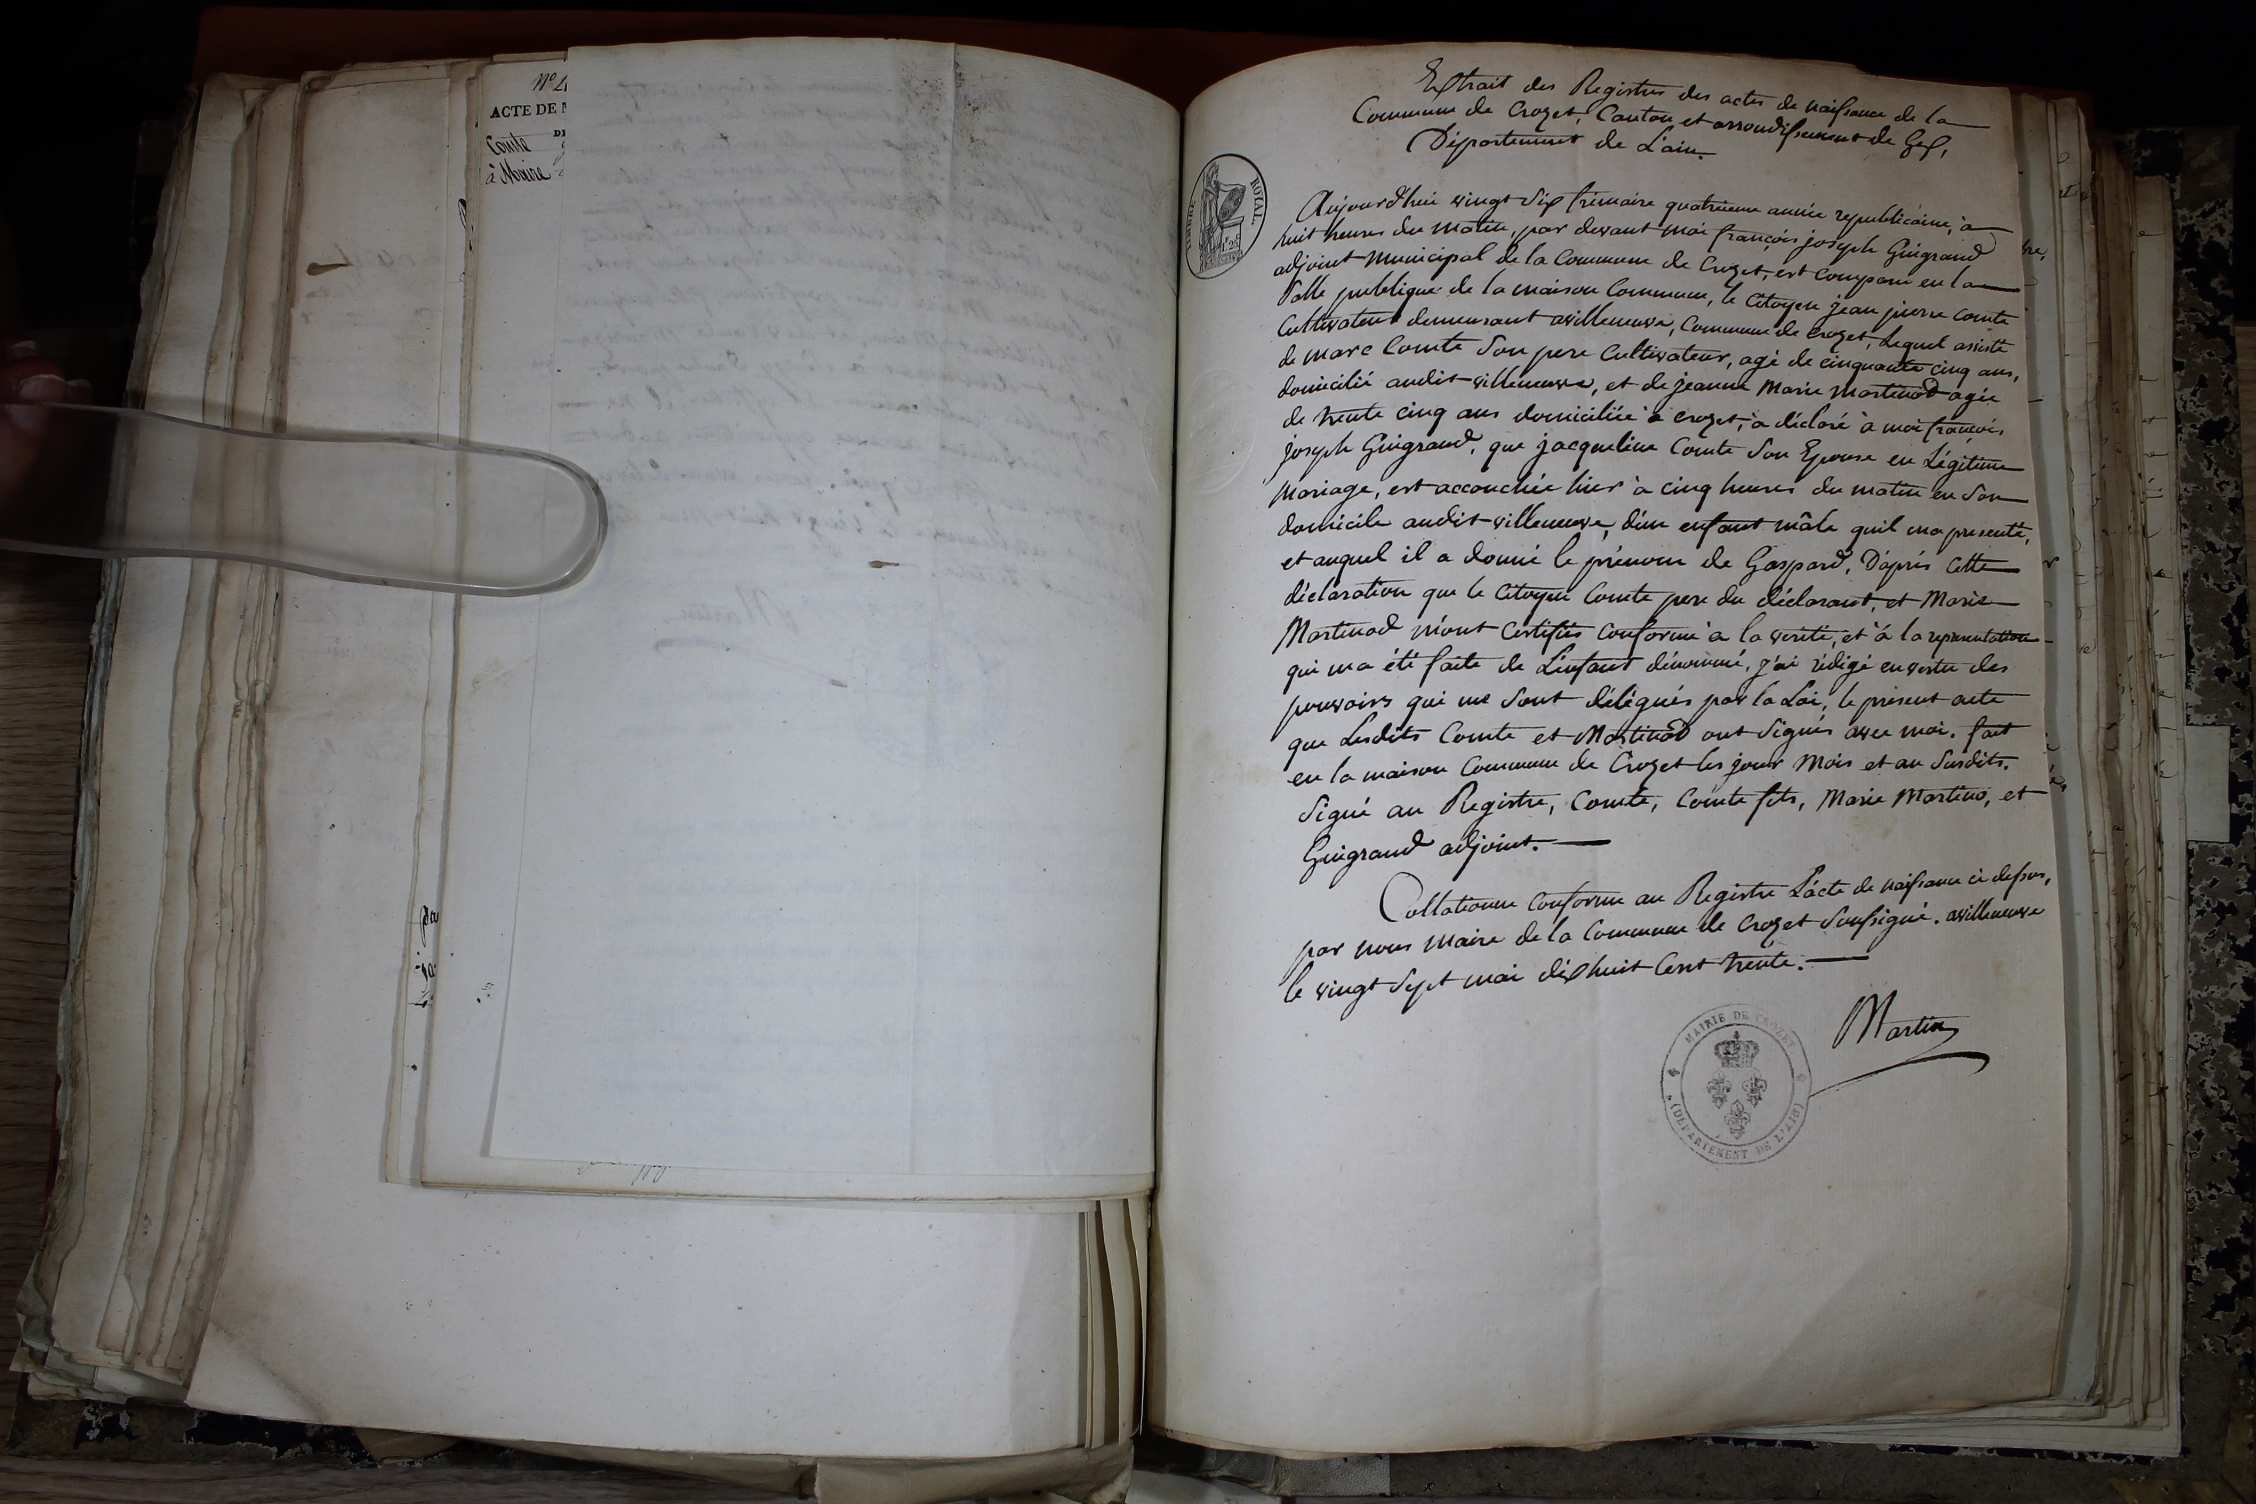 ACTE DE
Comte
à Moire
Extrait des Registres des actes de naissance de la
Commune de Crozet, Canton et arrondissement de Gex,
Département de L'ain.
TIMBRE ROYAL
Aujourd'hui vingt six frimaire quatrieme année republicaine, à
huit heures du matin, par devant moi françois joseph Guigrand
adjoint municipal de la Commune de Crozet, est comparu en la
Salle publique de la maison Commune, le Citoyen jean pierre Comte
Cultivateur demeurant avilleneuve, Commune de Crozet, Lequel assisté
de marc Comte Son pere Cultivateur, agé de cinquante cinq ans,
domicilié audit villeneuve, et de jeanne Marie Martinod agée
de trente cinq ans domiciliée à crozet, à déclaré à moi françois
joseph Guigrand, que jacqueline Comte Son Epouse en Légitime
Mariage, est accouchée hier à cinq heures du matin en Son
domicile audit villeneuve, d'un enfant mâle quil ma presenté,
et auquel il a donné le prénom de Gaspard, D'après Cette
déclaration que le Citoyen Comte pere du déclarant, et Marie
Martinod m'ont Certifiés Conforme à la verité, et à la representation
qui ma été faite de L'enfant dénommé, j'ai rédigé envertu des
pouvoirs qui me Sont délégués par la Loi, le présent acte
que Lesdits Comte et Martinod ont Signés avec moi. fait
en la maison Commune de Crozet les jour Mois et an Susdits.
Signé au Registre, Comte, Comte fils, Marie Martino, et
Guigrand adjoint.
Collationné Conforme au Registre L'acte de naissance ci dessus,
par nous Maire de la Commune de Crozet Soussigné. avilleneuve
le vingt Sept mai dixhuit Cent trente.
Martin
MAIRIE DE CROZET
(DÉPARTEMENT DE L'AIN)